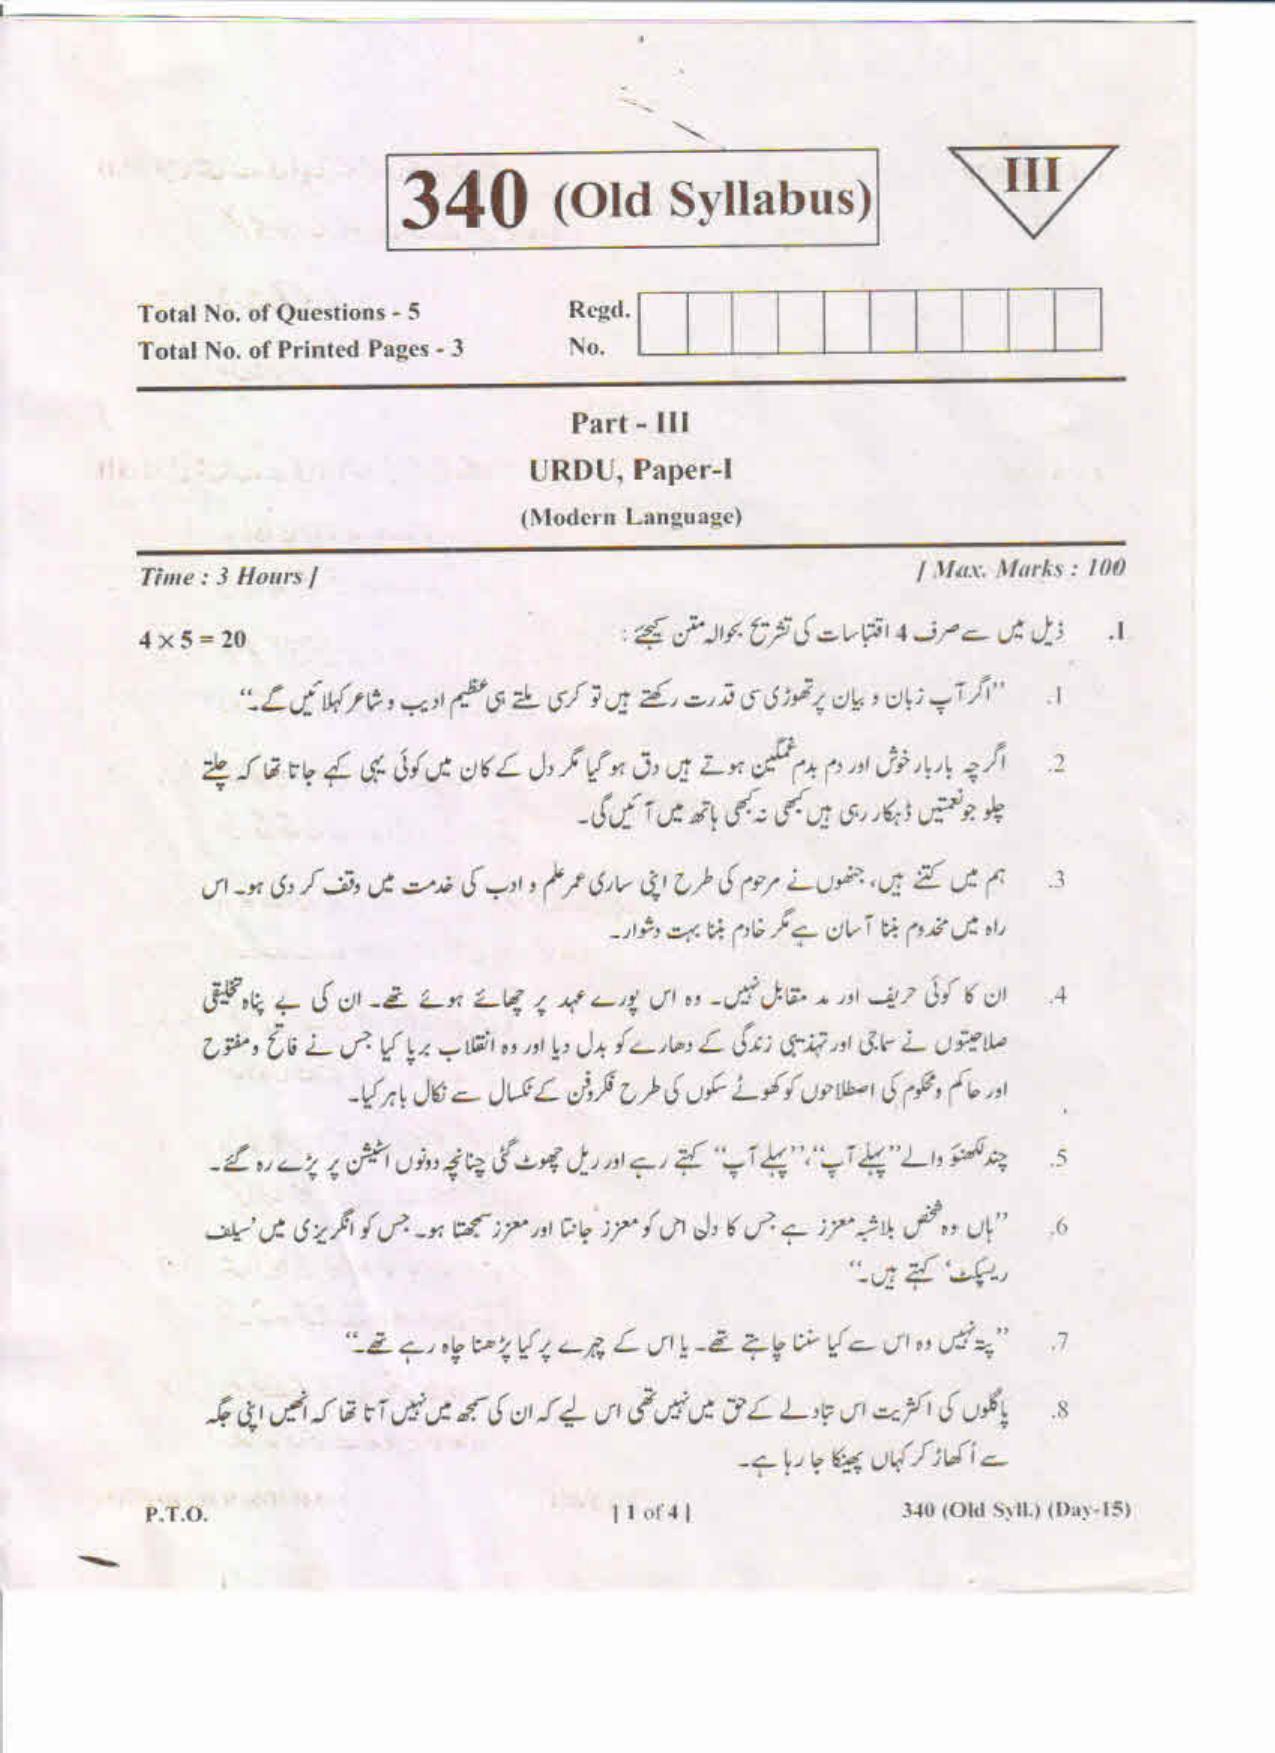 340 (Old Syllabus)
III
Total No. of Questions - 5
Regd.
Total No. of Printed Pages - 3
No.
Part - III
URDU, Paper-I
(Modern Language)
Time : 3 Hours ]
[ Max. Marks : 100
1. ذیل میں سے صرف 4 اقتباسات کی تشریح بحوالہ متن کیجئے :
4 × 5 = 20
1. ”اگر آپ زبان و بیان پر تھوڑی سی قدرت رکھتے ہیں تو کرسی ملتے ہی عظیم ادیب و شاعر کہلائیں گے۔“
2. اگرچہ باربار خوش اور دم بدم غمگین ہوتے ہیں دق ہو گیا مگر دل کے کان میں کوئی یہی کہے جاتا تھا کہ چلے
چلو جو نعمتیں ڈہکار رہی ہیں کبھی نہ کبھی ہاتھ میں آئیں گی۔
3. ہم میں کتنے ہیں، جنھوں نے مرحوم کی طرح اپنی ساری عمر علم و ادب کی خدمت میں وقف کر دی ہو۔ اس
راہ میں مخدوم بننا آسان ہے مگر خادم بننا بہت دشوار۔
4. ان کا کوئی حریف اور مد مقابل نہیں۔ وہ اس پورے عہد پر چھائے ہوئے تھے۔ ان کی بے پناہ تخلیقی
صلاحیتوں نے سماجی اور تہذیبی زندگی کے دھارے کو بدل دیا اور وہ انقلاب برپا کیا جس نے فاتح و مفتوح
اور حاکم و محکوم کی اصطلاحوں کو کھوٹے سکوں کی طرح فکروفن کے ٹکسال سے نکال باہر کیا۔
5. چند لکھنؤ والے ”پہلے آپ“، ”پہلے آپ“ کہتے رہے اور ریل چھوٹ گئی چنانچہ دونوں اسٹیشن پر پڑے رہ گئے۔
6. ”ہاں وہ شخص بلاشبہ معزز ہے جس کا دل اس کو معزز جانتا اور معزز سمجھتا ہو۔ جس کو انگریزی میں ’سیلف
ریسپکٹ‘ کہتے ہیں۔“
7. ”پتہ نہیں وہ اس سے کیا سننا چاہتے تھے۔ یا اس کے چہرے پر کیا پڑھنا چاہ رہے تھے۔“
8. پاگلوں کی اکثریت اس تبادلے کے حق میں نہیں تھی اس لیے کہ ان کی سمجھ میں نہیں آتا تھا کہ انھیں اپنی جگہ
سے اُکھاڑ کر کہاں پھینکا جا رہا ہے۔
P.T.O.
[ 1 of 4 ]
340 (Old Syll.) (Day-15)